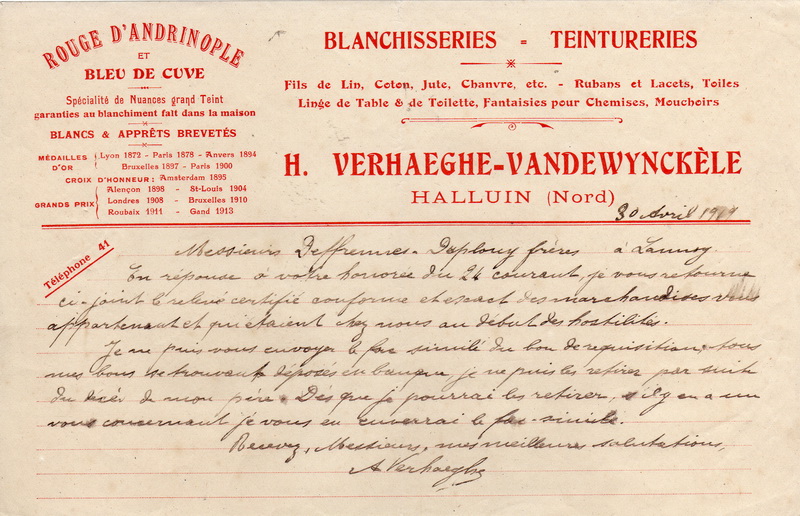 ROUGE D'ANDRINOPLE
ET
BLEU DE CUVE
Spécialité de Nuances grand Teint
garanties au blanchiment fait dans la maison
BLANCS & APPRÊTS BREVETÉS
MÉDAILLES D'OR
Lyon 1872 - Paris 1878 - Anvers 1894
Bruxelles 1897 - Paris 1900
CROIX D'HONNEUR : Amsterdam 1895
GRANDS PRIX
Alençon 1898 - St-Louis 1904
Londres 1908 - Bruxelles 1910
Roubaix 1911 - Gand 1913
BLANCHISSERIES = TEINTURERIES
Fils de Lin, Coton, Jute, Chanvre, etc. - Rubans et Lacets, Toiles
Linge de Table & de Toilette, Fantaisies pour Chemises, Mouchoirs
H. VERHAEGHE-VANDEWYNCKÈLE
HALLUIN (Nord)
30 Avril 1919
Téléphone 41
Messieurs Deffrennes-Duplouy frères à Lannoy.
En réponse à votre honorée du 24 courant, je vous retourne
ci-joint le relevé certifié conforme et exact des marchandises vous
appartenant et qui étaient chez nous au début des hostilités.
Je ne puis vous envoyer le fac similé du bon de requisition, tous
mes bons se trouvant déposés en banque je ne puis les retirer par suite
du décés de mon père. Dès que je pourrai les retirer, s'il y en a un
vous concernant je vous en enverrai le fac-similé.
Recevez, Messieurs, mes meilleures salutations,
A Verhaeghe